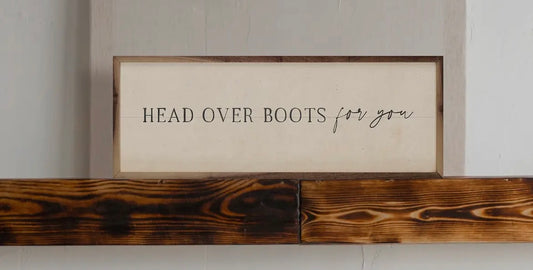 HEAD OVER BOOTS for you